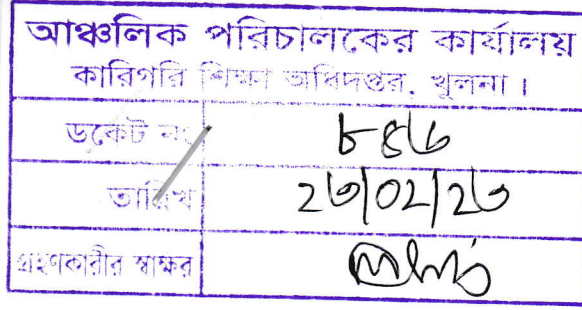 আঞ্চলিক পরিচালকের কার্যালয়
কারিগরি শিক্ষা অধিদপ্তর, খুলনা।
ডকেট নং
তারিখ ২৩/০২/২৩
গ্রহণকারীর স্বাক্ষর